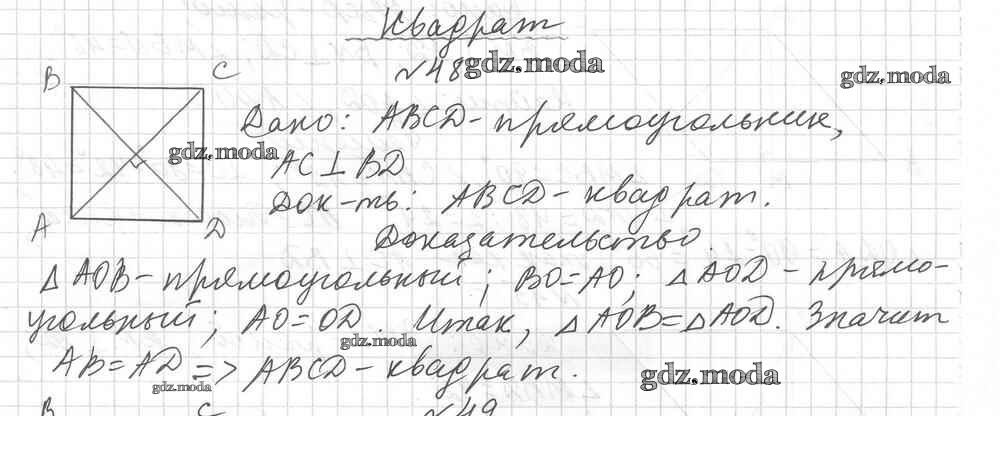 Квадрат
№48
gdz.moda
gdz.moda
B C
Дано: ABCD - прямоугольник,
gdz.moda
AC⊥BD
Док-ть: ABCD - квадрат.
A D
Доказательство.
△AOB - прямоугольный; BO=AO; △AOD - прямо-
угольный; AO=OD. Итак, △AOB=△AOD. Значит
gdz.moda
AB=AD => ABCD - квадрат.
gdz.moda
gdz.moda
B C №49